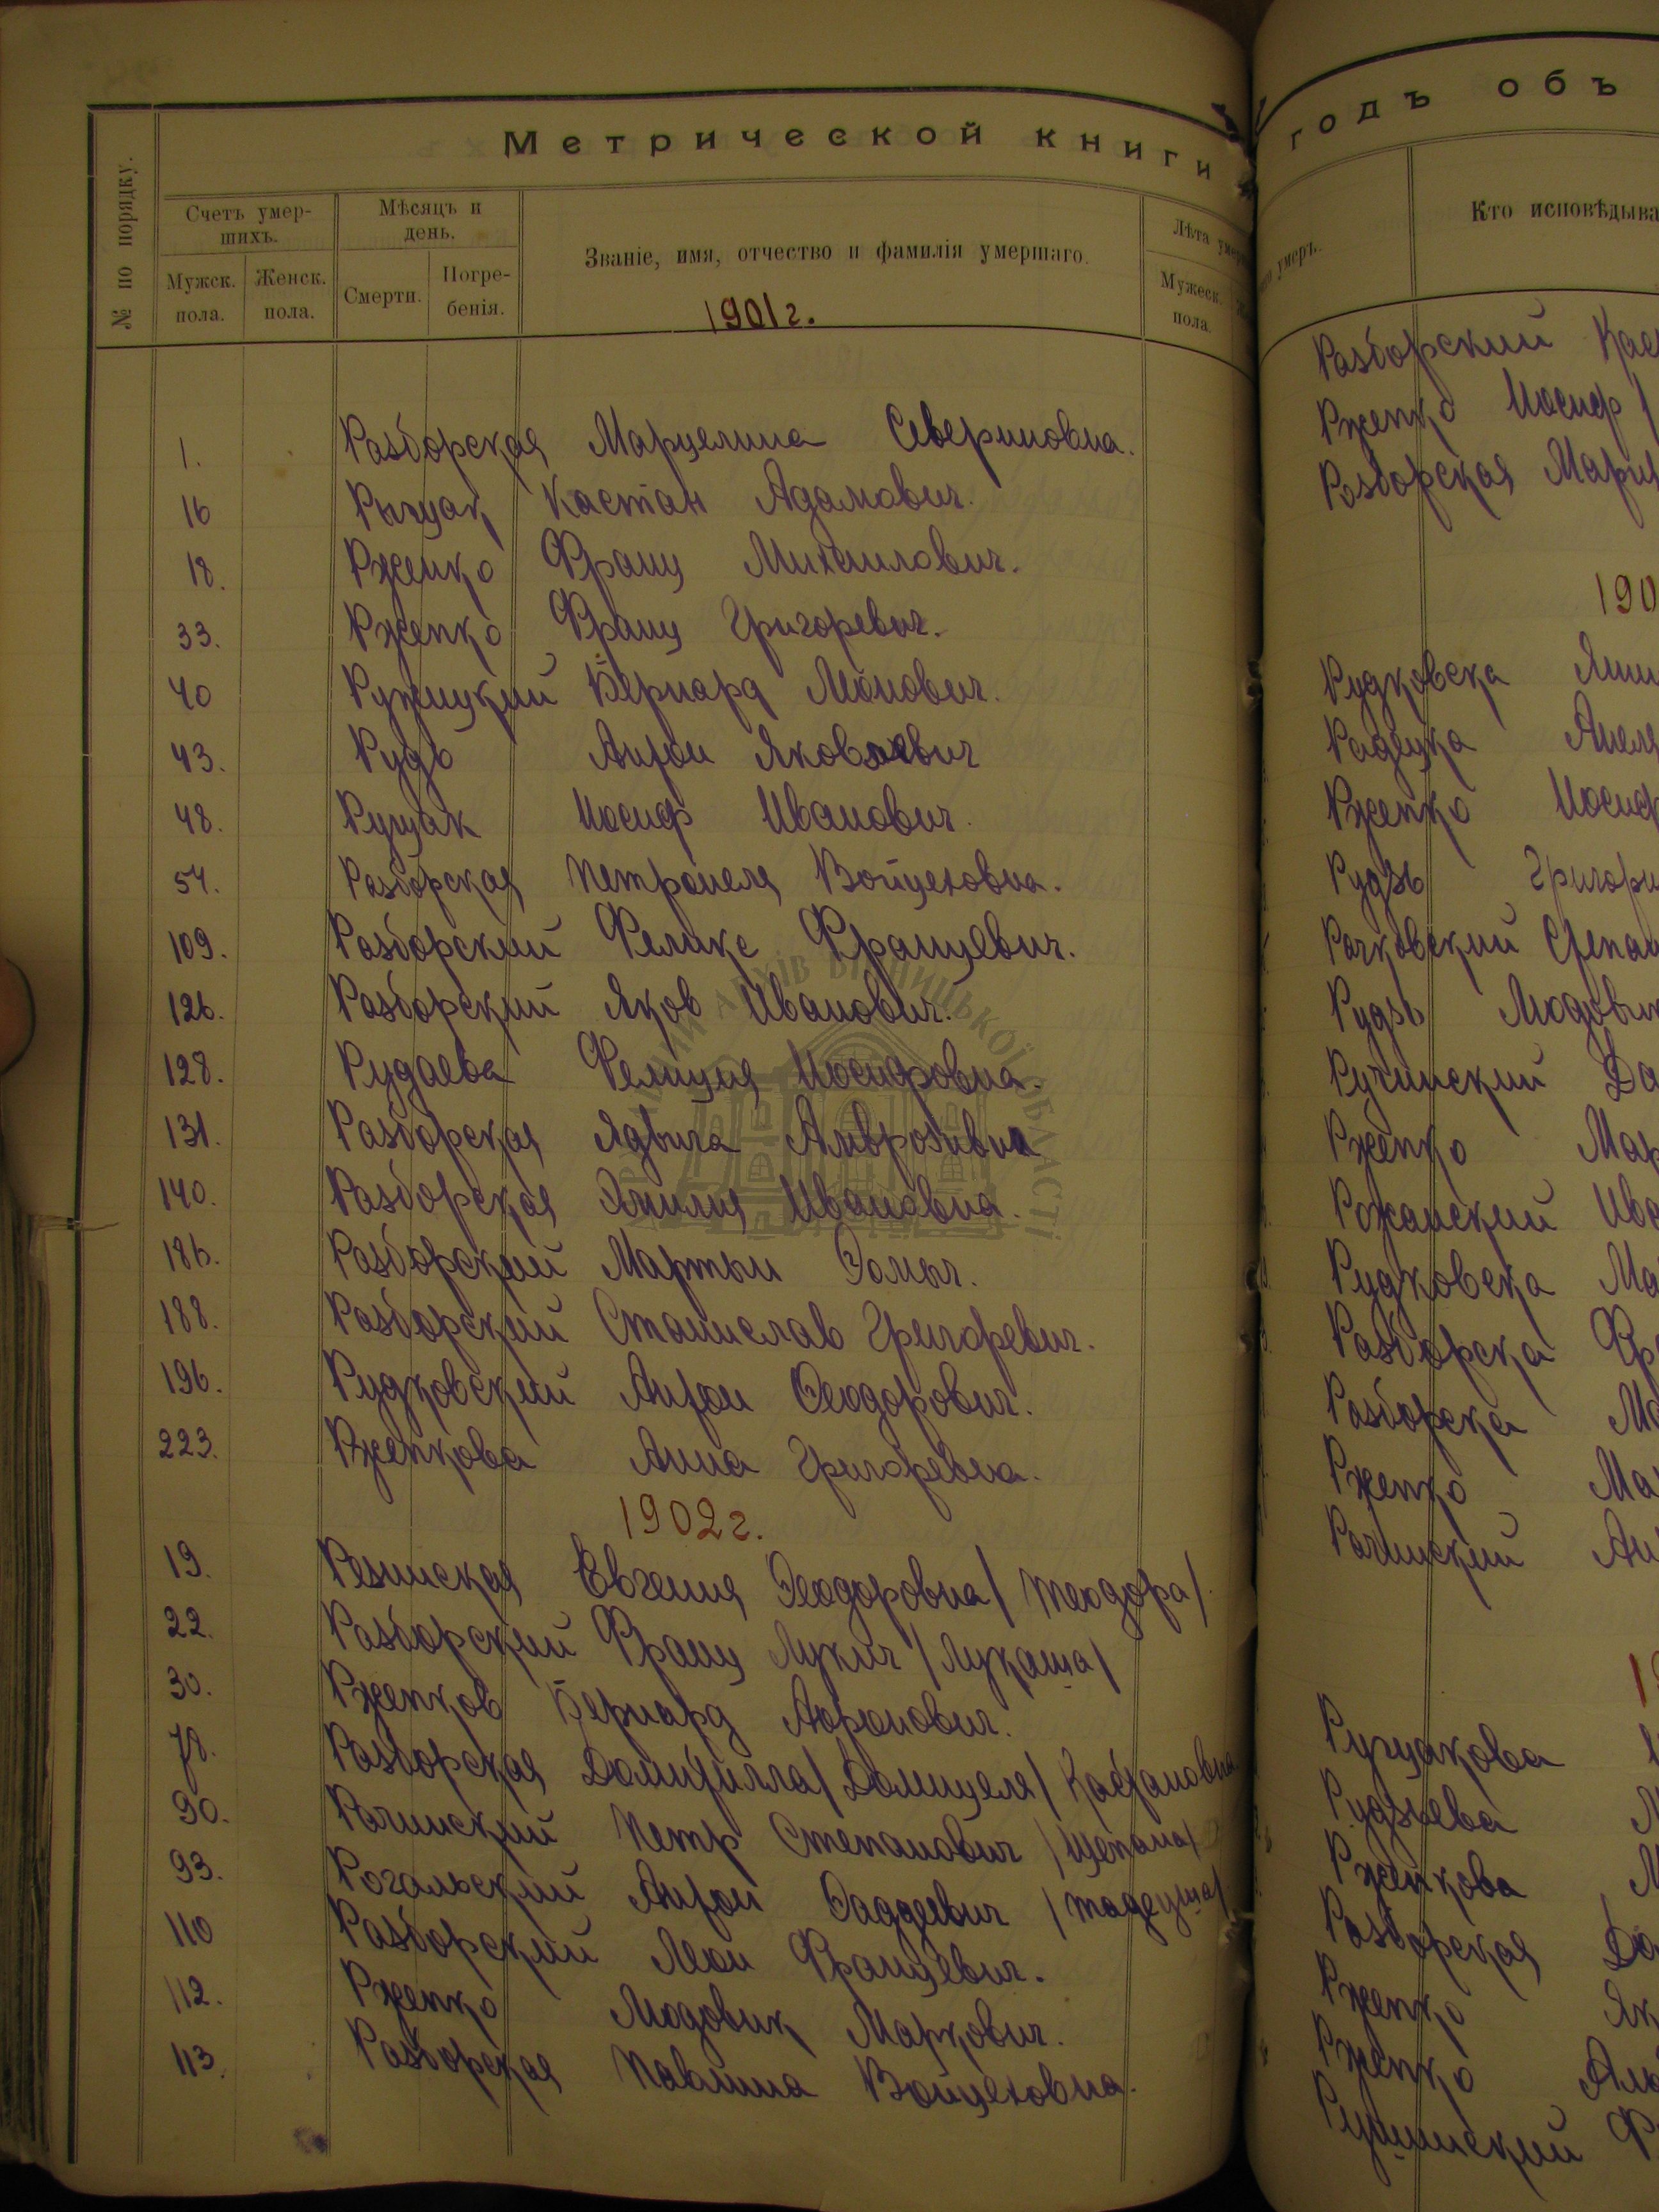 Метрической книги
№ по порядку.
Счетъ умер-
шихъ.
Мужск.
пола.
Женск.
пола.
Мѣсяцъ и
день.
Смерти.
Погре-
бенія.
Званіе, имя, отчество и фамилія умершаго.
Лѣта
Мужеск.
пола.
1901 г.
1. Разборская Марцелина Севериновна.
16 Рыщак Кастан Адамович.
18. Ржепко Франц Михаилович.
33. Ржепко Франц Григоревич.
40 Ружицкий Бернард Леонович.
43. Рудь Антон Яковлевич
48. Рущак Иосиф Иванович.
54. Разборская Петронеля Войцеховна.
109. Разборский Феликс Францевич.
126. Разборский Яков Иванович.
128. Рудаева Фелиция Иосифовна.
131. Разборская Ядвига Амврозивна
140. Разборская Эмилия Ивановна.
186. Разборский Мартын Фомич.
188. Разборский Станислав Григоревич.
196. Рудковский Антон Феодорович.
223. Ржепкова Анна Григоревна.
1902 г.
19. Резинская Евгения Феодоровна /Теодора/.
22. Разборский Франц Лукич /Лукаша/
30. Ржепков Бернард Аоронович.
78. Разборская Домитилла /Домицеля/ Кастановна
90. Рачинский Петр Степанович /Щепана/
93. Рогальский Антон Фаддеевич /Тадеуша/
110 Разборский Леон Францевич.
112. Ржепко Людовик Маркович.
113. Разборская Павлина Войцеховна.
годъ объ
умеръ.
Кто
Разборский
Ржепко Иосиф
Разборская
Рудковска
Радецка
Ржепко
Рудзь
Рачковский
Рудзь
Ручинский
Ржепко
Рожанский
Рудковска
Разборска
Разборска
Ржепко
Рачинский
Рущакова
Рудзьева
Ржепкова
Разборская
Ржепко
Ржепко